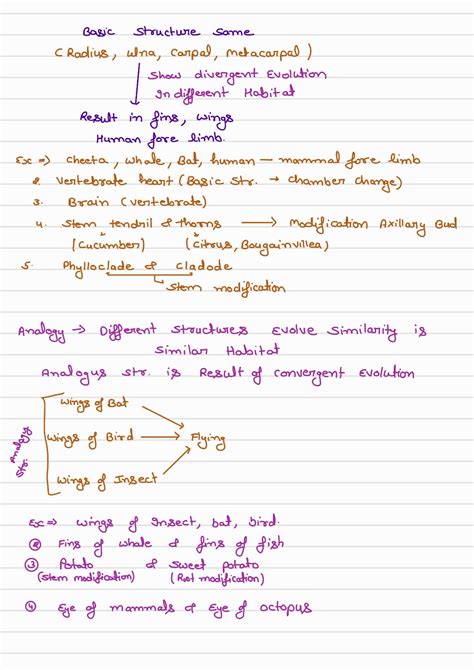 Basic Structure Same
( Radius, ulna, Carpal, metacarpal )
Show divergent Evolution
In different Habitat
Result in fins, wings
Human fore limb.
Ex => Cheeta, whale, Bat, human — mammal fore limb
2. Vertebrate heart (Basic Str. → chamber change)
3. Brain (vertebrate)
4. Stem tendril & thorns → Modification Axillary Bud
(Cucumber) (Citrus, Bougainvillea)
5. Phylloclade & Cladode
Stem modification
Analogy → Different Structures Evolve Similarity is
Similar Habitat
Analogus Str. is Result of Convergent Evolution
Analogy Str.
Wings of Bat
Wings of Bird → Flying
Wings of Insect
Ex => Wings of Insect, bat, bird.
② Fins of whale & fins of fish
③ Potato & Sweet potato
(Stem modification) (Root modification)
④ Eye of mammals & Eye of octopus